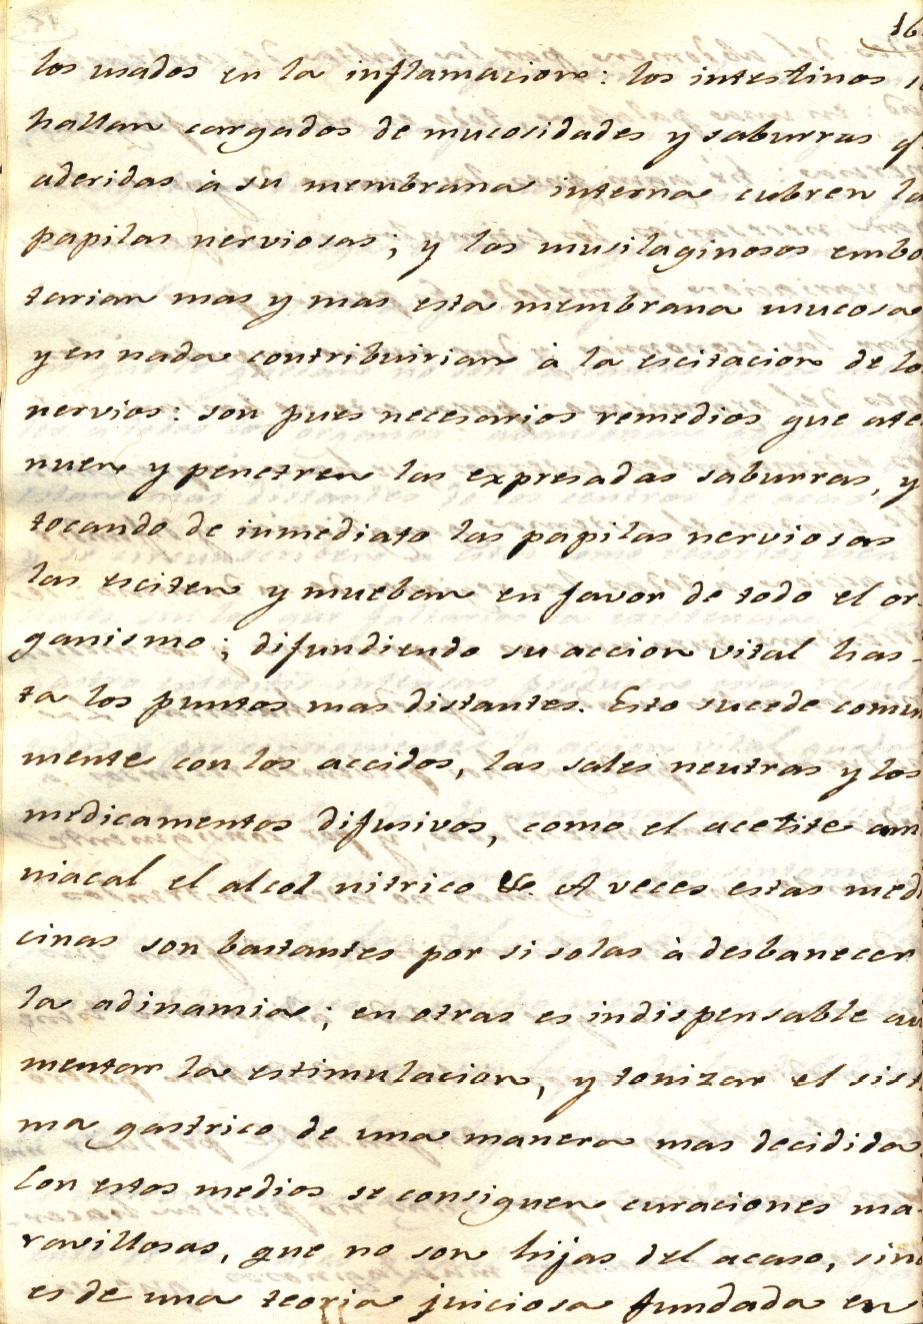 16
los usados en la inflamacion: los intestinos s
hallan cargados de mucosidades y saburras q
aderidas à su membrana interna cubren la
papilas nerviosas; y los musilaginosos embo
tarian mas y mas esta membrana mucosa
y en nada contribuirian à la escitacion de lo
nervios: son pues necesarios remedios que ate
nuen y penetren las expresadas saburras, y
tocando de inmediato las papilas nerviosas
las esciten y mueban en favor de todo el or
ganismo; difundiendo su accion vital has-
ta los puntos mas distantes. Esto sucede comu
mente con los accidos, las sales neutras y los
medicamentos difusivos, como el acetite am
niacal el alcol nitrico &c. A veces estas medi
cinas son bastantes por si solas à desbanecer
la adinamia; en otras es indispensable au
mentar la estimulacion, y tonizar el sist
ma gastrico de una manera mas decidida
Con estos medios se consiguen curaciones ma-
ravillosas, que no son hijas del acaso, sino
es de una teoria juiciosa fundada en